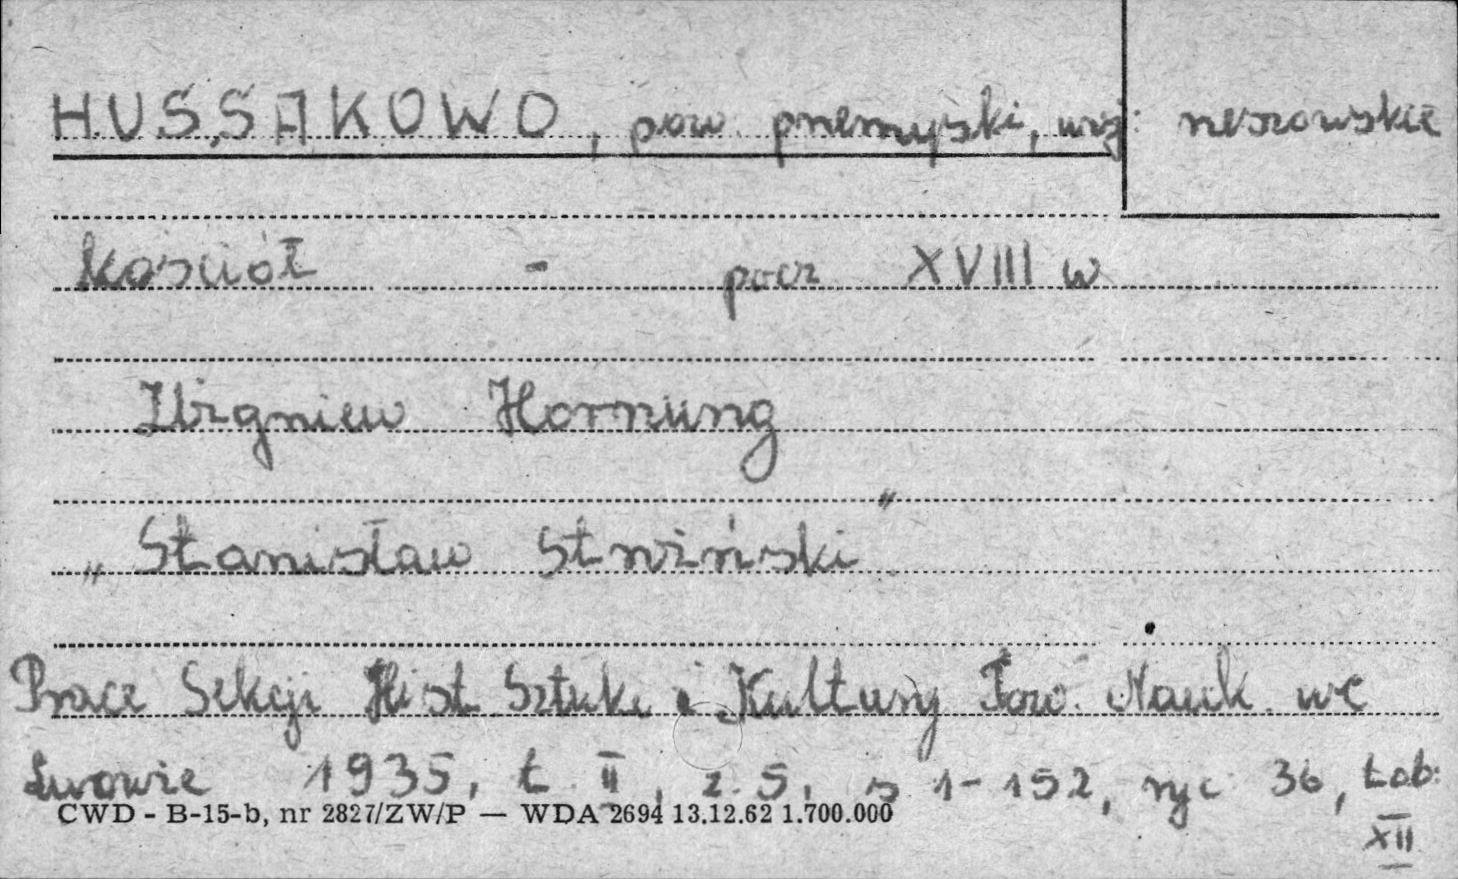 HUSSAKOWO, pow. przemyski, woj: rzeszowskie
Kościół - pocz XVIII w
Zbigniew Hornung
„Stanisław Stroiński"
Prace Sekcji Hist Sztuki i Kultury Tow. Nauk. we
Lwowie 1935, t. II, z. 5, s 1-152, ryc 36, tab:
XII
CWD - B-15-b, nr 2827/ZW/P — WDA 2694 13.12.62 1.700.000